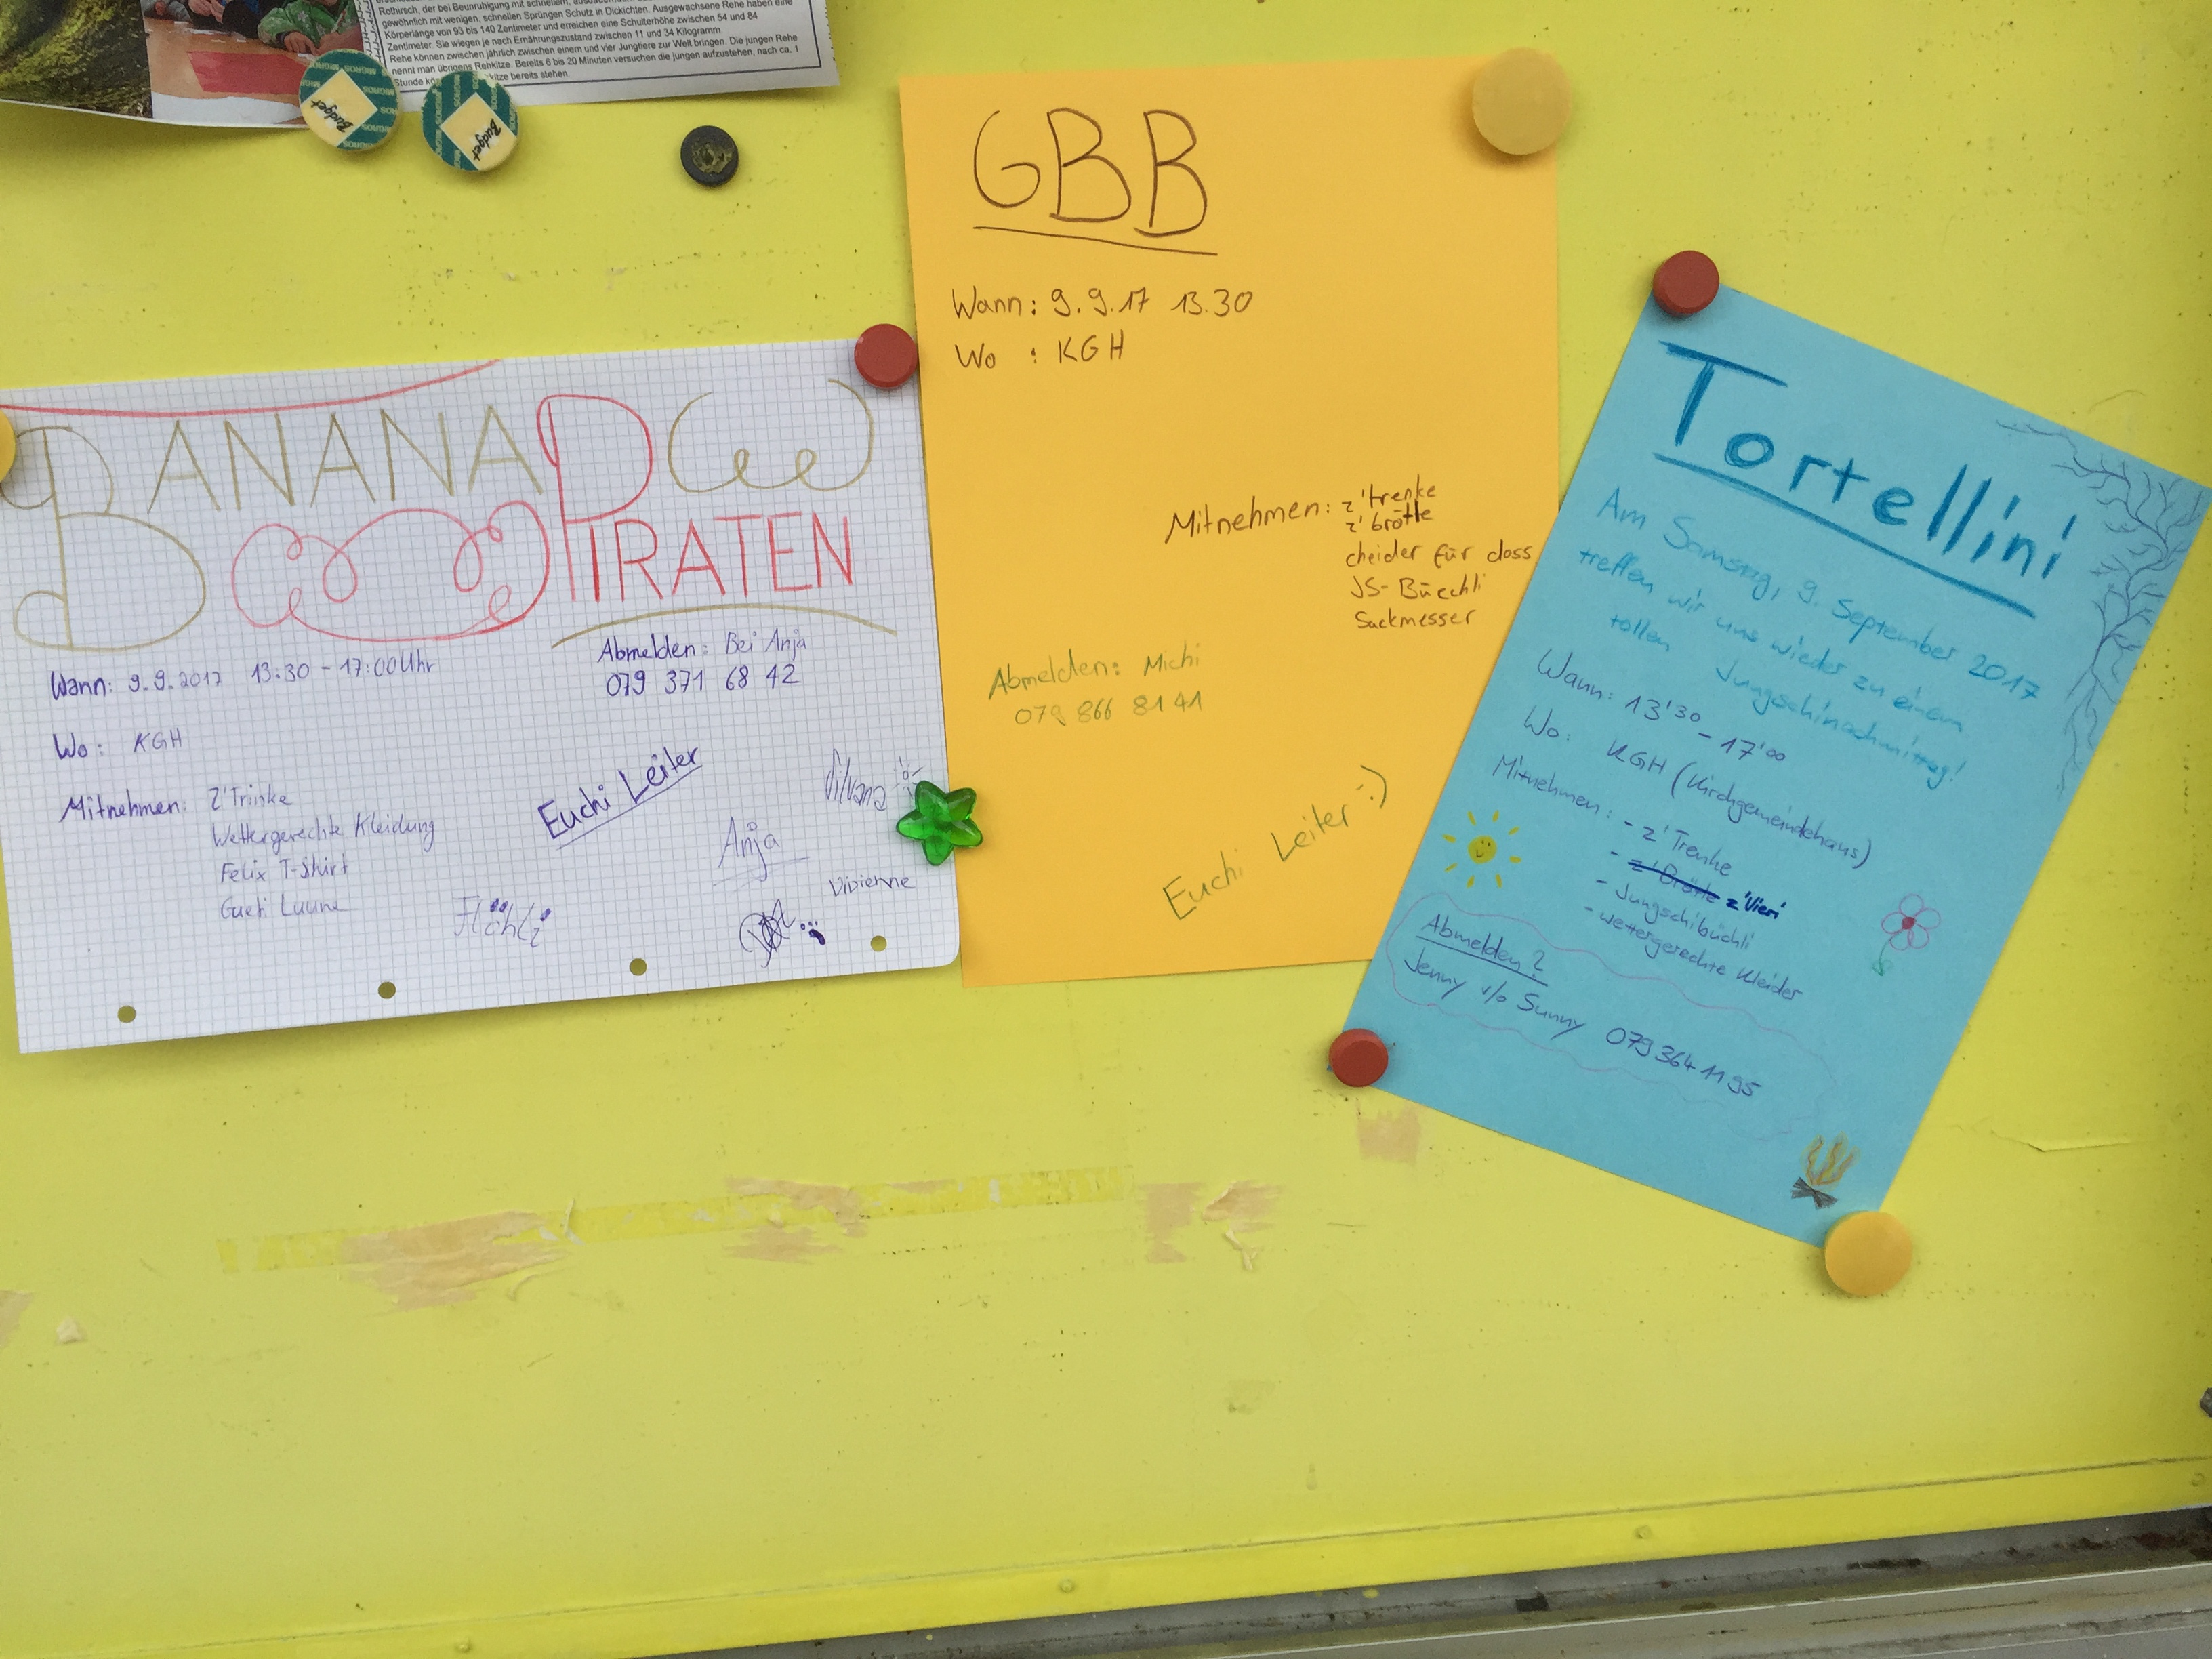 Rothirsch, der bei Beunruhigung mit schnellem,
gewöhnlich mit wenigen, schnellen Sprüngen Schutz in Dickichten. Ausgewachsene Rehe haben eine
Körperlänge von 93 bis 140 Zentimeter und erreichen eine Schulterhöhe zwischen 54 und 84
Zentimeter. Sie wiegen je nach Ernährungszustand zwischen 11 und 34 Kilogramm.
Rehe können zwischen jährlich zwischen einem und vier Jungtiere zur Welt bringen. Die jungen Rehe
nennt man übrigens Rehkitze. Bereits 6 bis 20 Minuten versuchen die jungen aufzustehen, nach ca. 1
Stunde kitze bereits stehen.
MIGROS Budget
MIGROS Budget
BANANA
PIRATEN
Wann: 9.9.2017 13:30 - 17:00 Uhr
Wo: KGH
Mitnehmen: Z'Trinke
Wettergerechte Kleidung
Felix T-Shirt
Gueti Luune
Abmelden: Bei Anja
079 371 68 42
Euchi Leiter
Silvana
Anja
Vivienne
Flöhli
GBB
Wann: 9.9.17 13.30
Wo : KGH
Mitnehmen: z'trenke
z'brötle
cheider für doss
JS-Büechli
Sackmesser
Abmelden: Michi
079 866 81 41
Euchi Leiter :)
Tortellini
Am Samstag, 9. September 2017
treffen wir uns wieder zu einem
tollen Jungschinachmittag!
Wann: 13'30 - 17'00
Wo: KGH (Kirchgemeindehaus)
Mitnehmen: - z'Trenke
- z'Brötle z'Vieri
- Jungschibüchli
- wettergerechte Kleider
Abmelden?
Jenny v/o Sunny 079 364 11 95